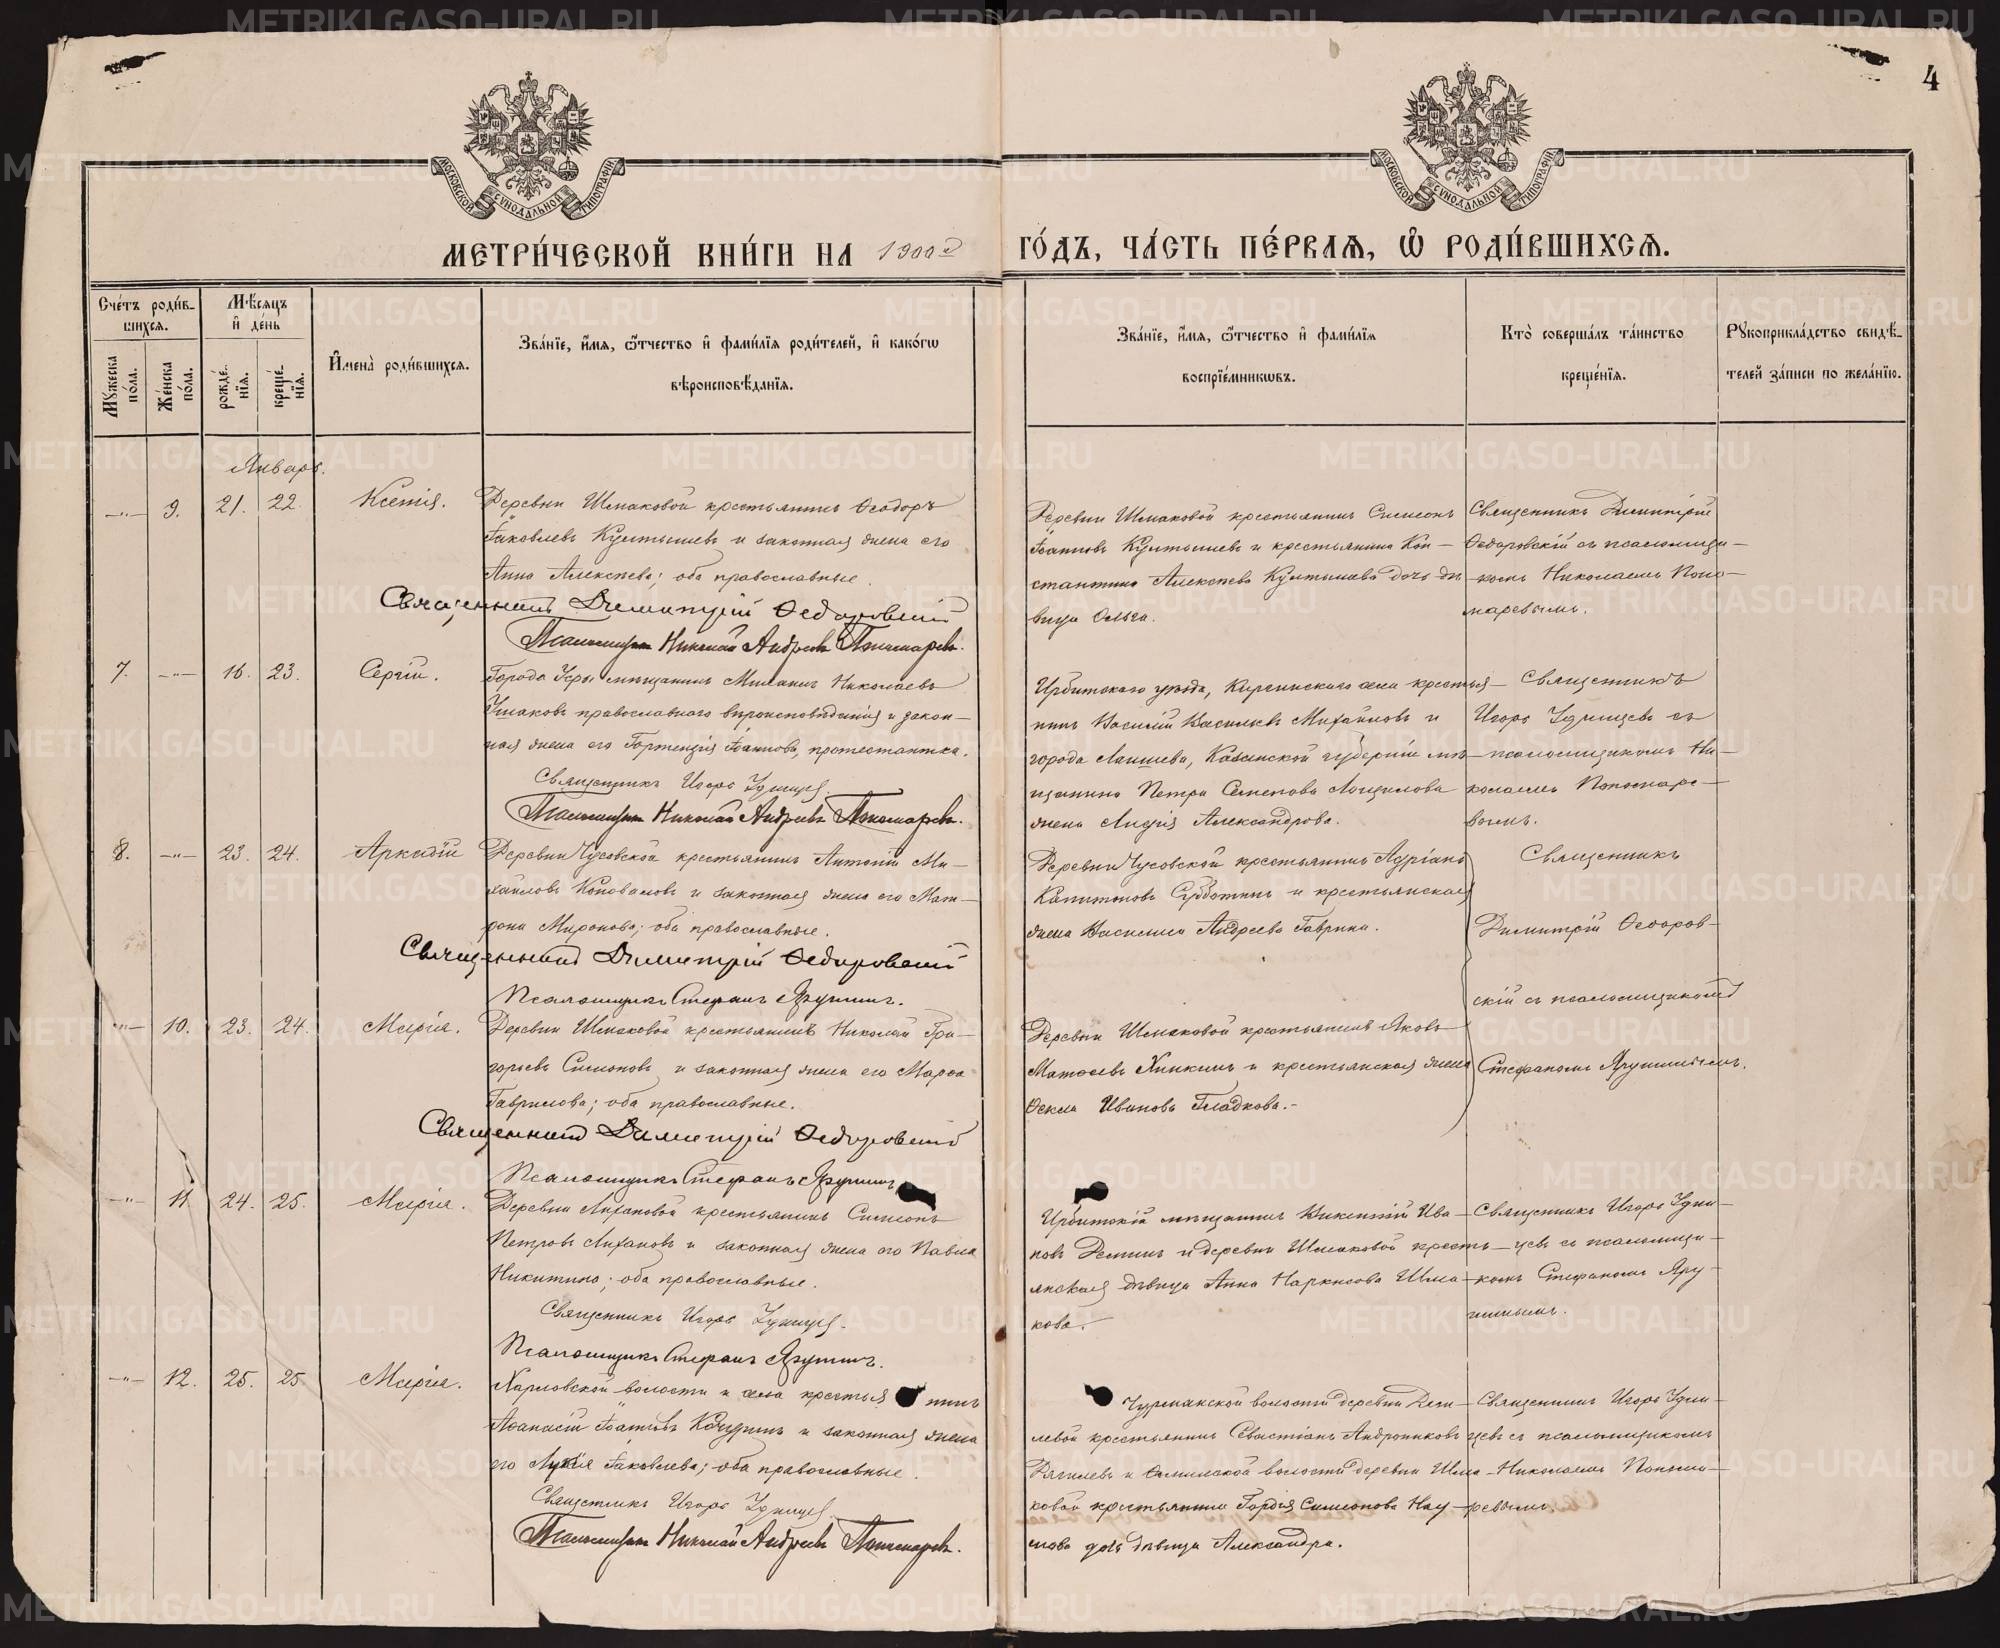 4
МОСКОВСКОЙ СѴНОДАЛЬНОЙ ТИПОГРАФІИ
МОСКОВСКОЙ СѴНОДАЛЬНОЙ ТИПОГРАФІИ
МЕТРИ́ЧЕСКОЙ КНИ́ГИ НА 1900й ГО́ДЪ, ЧА́СТЬ ПЕ́РВАЯ, Ѡ҆ РОДИ́ВШИХСЯ.
Сче́тъ роди́в-
шихся.
Мꙋ́жеска по́ла.
Же́нска по́ла.
Мѣ́сяцъ
и҆ де́нь
рожде́-нїя.
креще́-нїя.
И҆мена̀ роди́вшихся.
Зва́нїе, и҆́мя, ѻ҆́тчество и҆ фами́лїя роди́телей, и҆ како́гѡ
вѣроисповѣ́данїя.
Зва́нїе, и҆́мя, ѻ҆́тчество и҆ фами́лїя
воспрїе́мникѡвъ.
Кто̀ соверша́лъ та́инство
креще́нїя.
Рꙋкоприкла́дство свидѣ́-
телей за́писи по жела́нїю.
Январь.
—„— 9. 21. 22. Ксенія.
Деревни Шмаковой крестьянинъ Ѳеодоръ
Іаковлевъ Култышевъ и законная жена его
Анна Алексѣева; оба православные.
Священникъ Димитрій Ѳедоровскій
Псаломщикъ Николай Андреевъ Пономаревъ.
Деревни Шмаковой крестьянинъ Симеонъ
Іоанновъ Култышевъ и крестьянина Кон-
стантина Алексѣева Култышева дочь дѣ-
вица Ольга.
Священникъ Димитрій
Ѳедоровскій съ псаломщи-
комъ Николаемъ Поно-
маревымъ.
7. —„— 16. 23. Сергій.
Города Уфы мѣщанинъ Михаилъ Николаевъ
Ушаковъ православнаго вѣроисповѣданія и закон-
ная жена его Гортензія Іоаннова, протестантка.
Священникъ Игорь Удинцев.
Псаломщикъ Николай Андреевъ Пономаревъ.
Ирбитскаго уѣзда, Киргинскаго села крестья-
нинъ Василій Васильевъ Михайловъ и
города Лаишева, Казанской губерніи мѣ-
щанина Петра Семенова Лощилова
жена Лидія Александрова.
Священникъ
Игорь Удинцевъ съ
псаломщикомъ Ни-
колаемъ Пономаре-
вымъ.
8. —„— 23. 24. Аркадій
Деревни Чусовской крестьянинъ Антоній Ми-
хайловъ Коноваловъ и законная жена его Мат-
рона Миронова; оба православные.
Священникъ Димитрій Ѳедоровскій
Псаломщикъ Стефанъ Ярушинъ.
Деревни Чусовской крестьянинъ Адріанъ
Капитоновъ Субботинъ и крестьянская
жена Василиса Андреева Гаврина.
Священникъ
Димитрій Ѳедоров-
скій съ псаломщикомъ
Стефаномъ Ярушинымъ.
—„— 10. 23. 24. Марія.
Деревни Шмаковой крестьянинъ Николай Гри-
горьевъ Симоновъ и законная жена его Марѳа
Гаврилова; оба православные.
Священникъ Димитрій Ѳедоровскій
Псаломщикъ Стефанъ Ярушинъ
Деревни Шмаковой крестьянинъ Яковъ
Матѳеевъ Хинкинъ и крестьянская жена
Ѳекла Иванова Гладкова.-
—„— 11. 24. 25. Марія.
Деревни Лихановой крестьянинъ Симеонъ
Петровъ Лихановъ и законная жена его Павла
Никитина; оба православные.
Священникъ Игорь Удинцев.
Псаломщикъ Стефанъ Ярушинъ.
Ирбитскій мѣщанинъ Викентій Ива-
новъ Деминъ и деревни Шмаковой кресть-
янская дѣвица Анна Наркисова Шма-
кова.
Священникъ Игорь Удин-
цевъ съ псаломщи-
комъ Стефаномъ Яру-
шинымъ.
—„— 12. 25. 25. Марія.
Харловской волости и села крестьянинъ
Аѳанасій Іоанновъ и законная жена
его Іаковлева; оба православные.
Священникъ Игорь Удинцев.
Псаломщикъ Николай Андреевъ Пономаревъ.
волости деревни
крестьянинъ Севастіанъ Андрониковъ
и волости деревни Шма-
ковой крестьянина Гордія Симеонова Нау-
мова дочь дѣвица Александра.
Священникъ Игорь Удин-
цевъ съ псаломщикомъ
Николаемъ Понома-
ревымъ
METRIKI.GASO-URAL.RU